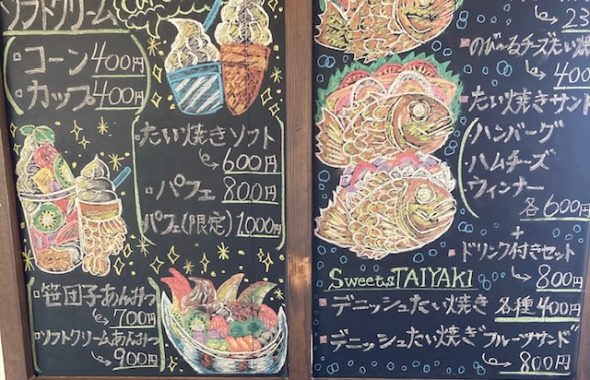 ソフトクリーム
コーン 400円
カップ 400円
たい焼きソフト
600円
パフェ 800円
パフェ(限定) 1,000円
笹団子あんみつ
700円
ソフトクリームあんみつ
900円
23
のび〜るチーズたい焼
400
たい焼きサンド
ハンバーグ
ハムチーズ
ウィンナー
各600円
+
ドリンク付きセット
800円
Sweets TAIYAKI
デニッシュたい焼き 各種400円
デニッシュたい焼き"フルーツサンド"
800円